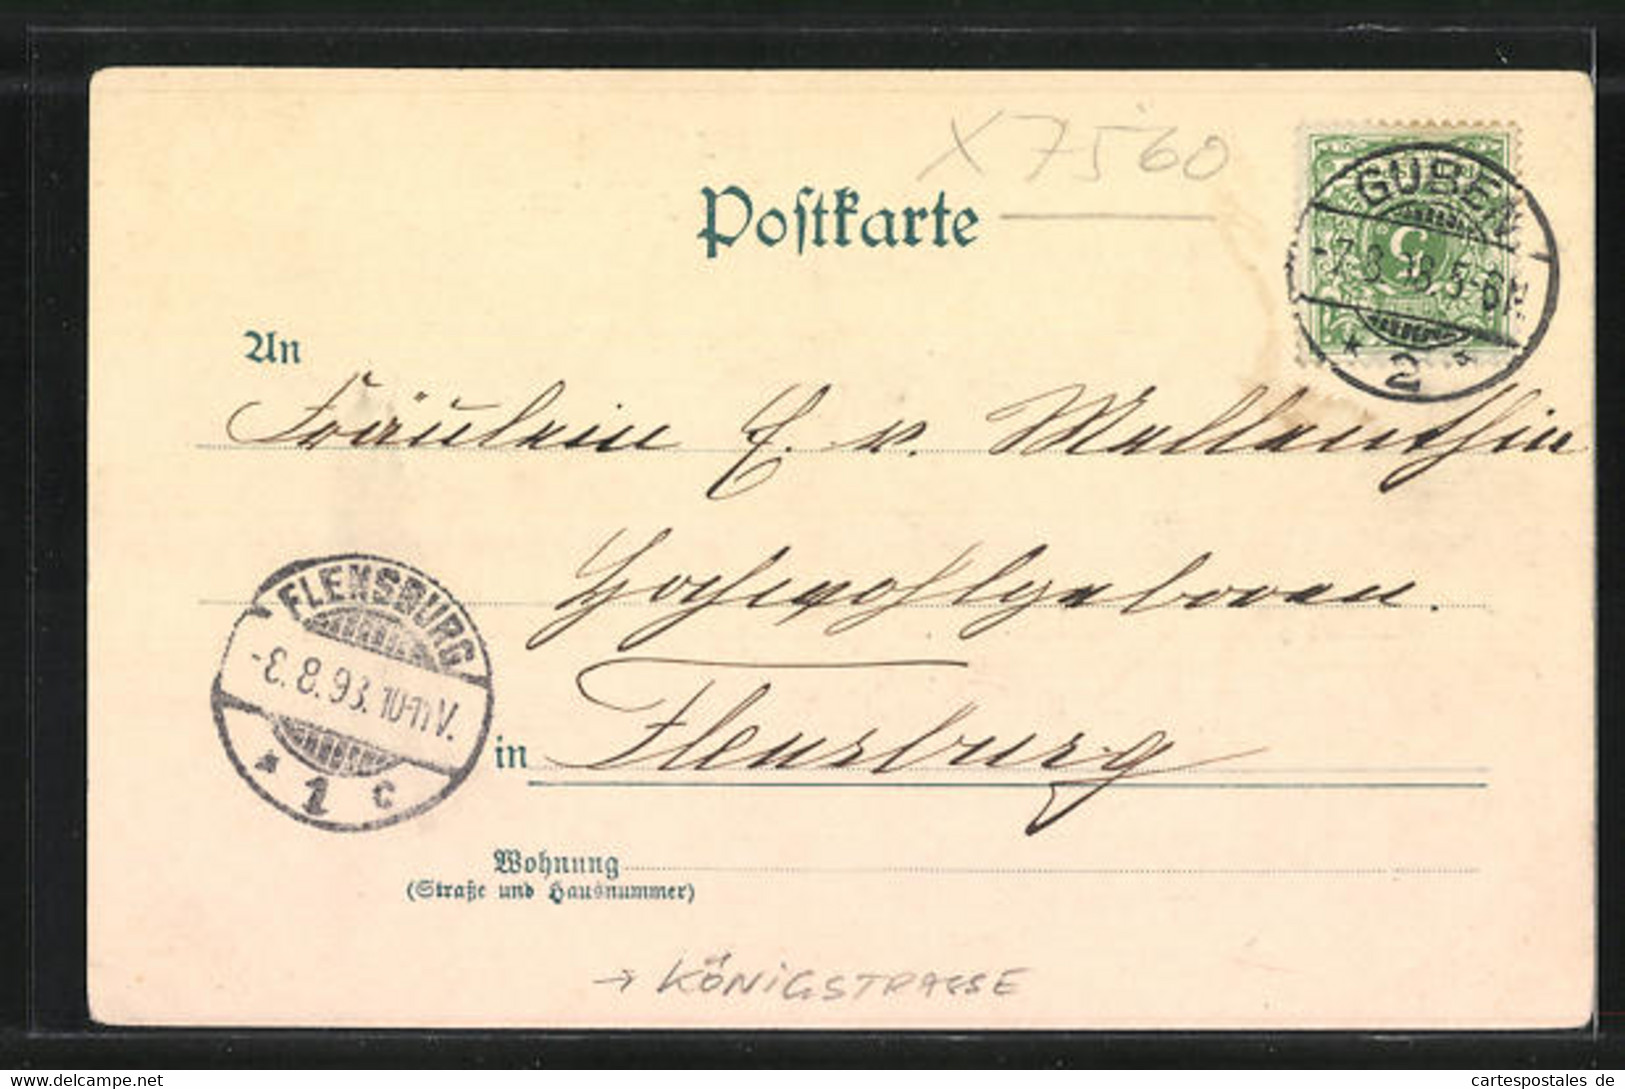 X 7560
Postkarte
GUBEN
-7.8.98.5-6N.
* 2 *
5
An
Fräulein E. v. Mallenthin
Hochwohlgeboren.
in Flensburg
FLENSBURG
-8.8.98. 10-11V.
* 1 c
Wohnung
(Straße und Hausnummer)
→ KÖNIGSTRASSE
www.delcampe.net
cartespostales de